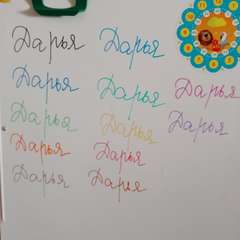 Дарья Дарья
Дарья Дарья Дарья
Дарья Дарья Дарья
Дарья Дарья
Дарья Дарья